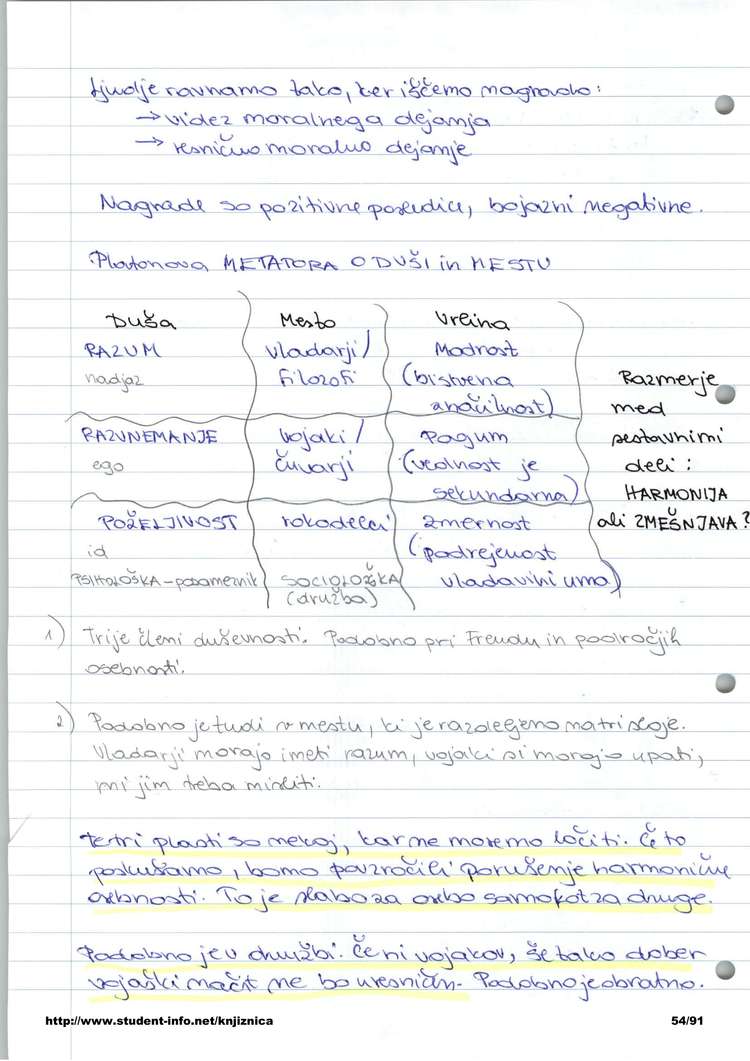 Ljudje ravnamo tako, ker iščemo nagrado:
→ videz moralnega dejanja
→ resnično moralno dejanje
Nagrade so pozitivne posledice, bojazni negativne.
Platonova METAFORA O DUŠI in MESTU
Duša Mesto Vrlina
RAZUM vladarji/ Modrost
nadjaz filozofi (bistvena Razmerje
značilnost) med
RAZVNEMANJE vojaki/ Pogum sestavnimi
ego čuvarji (vednost je deli:
sekundarna) HARMONIJA
POŽELJIVOST rokodelci zmernost ali ZMEŠNJAVA?
id (podrejenost
PSIHOLOŠKA-posameznik SOCIOLOŠKA vladavini uma)
(družba)
1) Trije členi duševnosti. Podobno pri Freudu in področjih
osebnosti.
2) Podobno je tudi v mestu, ki je razdeljeno na tri sloje.
Vladarji morajo imeti razum, vojaki si morajo upati,
ni jim treba misliti.
Te tri plasti so nekaj, kar ne moremo ločiti. Če to
poskušamo, bomo povzročili porušenje harmonične
osebnosti. To je slabo za osebo samo kot za druge.
Podobno je v družbi. Če ni vojakov, še tako dober
vojaški načrt ne bo uresničn. Podobno je obratno.
http://www.student-info.net/knjiznica 54/91